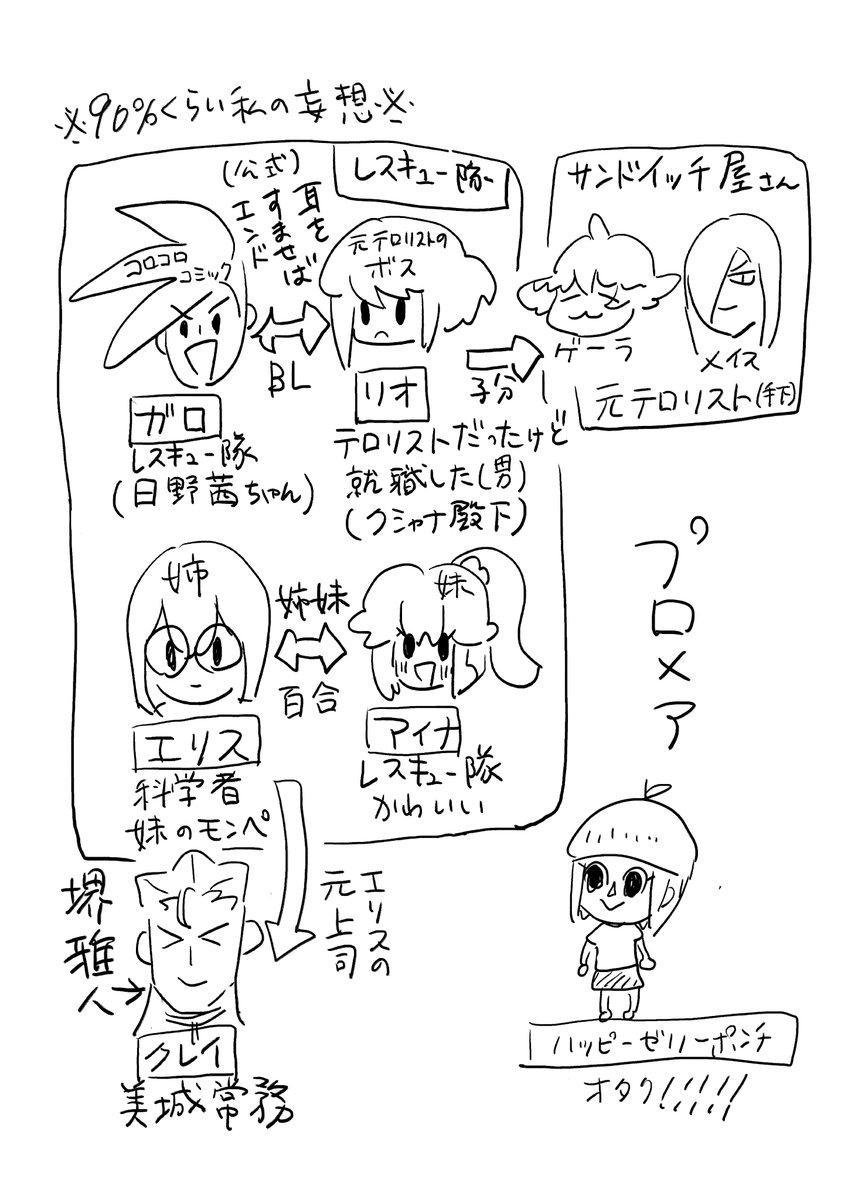 ※90%くらい私の妄想※
レスキュー隊
(公式)
耳を
すませば
エンド
コロコロ
コミック
元テロリストの
ボス
BL
ガロ
レスキュー隊
(日野茜ちゃん)
リオ
テロリストだったけど
就職した(男)
(クシャナ殿下)
子分
サンドイッチ屋さん
ゲーラ
メイス
元テロリスト(手下)
姉
姉妹
百合
妹
エリス
科学者
妹のモンペ
アイナ
レスキュー隊
かわいい
プロメア
エリスの
元上司
堺
雅
人→
クレイ
美城常務
ハッピーゼリーポンチ
オタク!!!!!